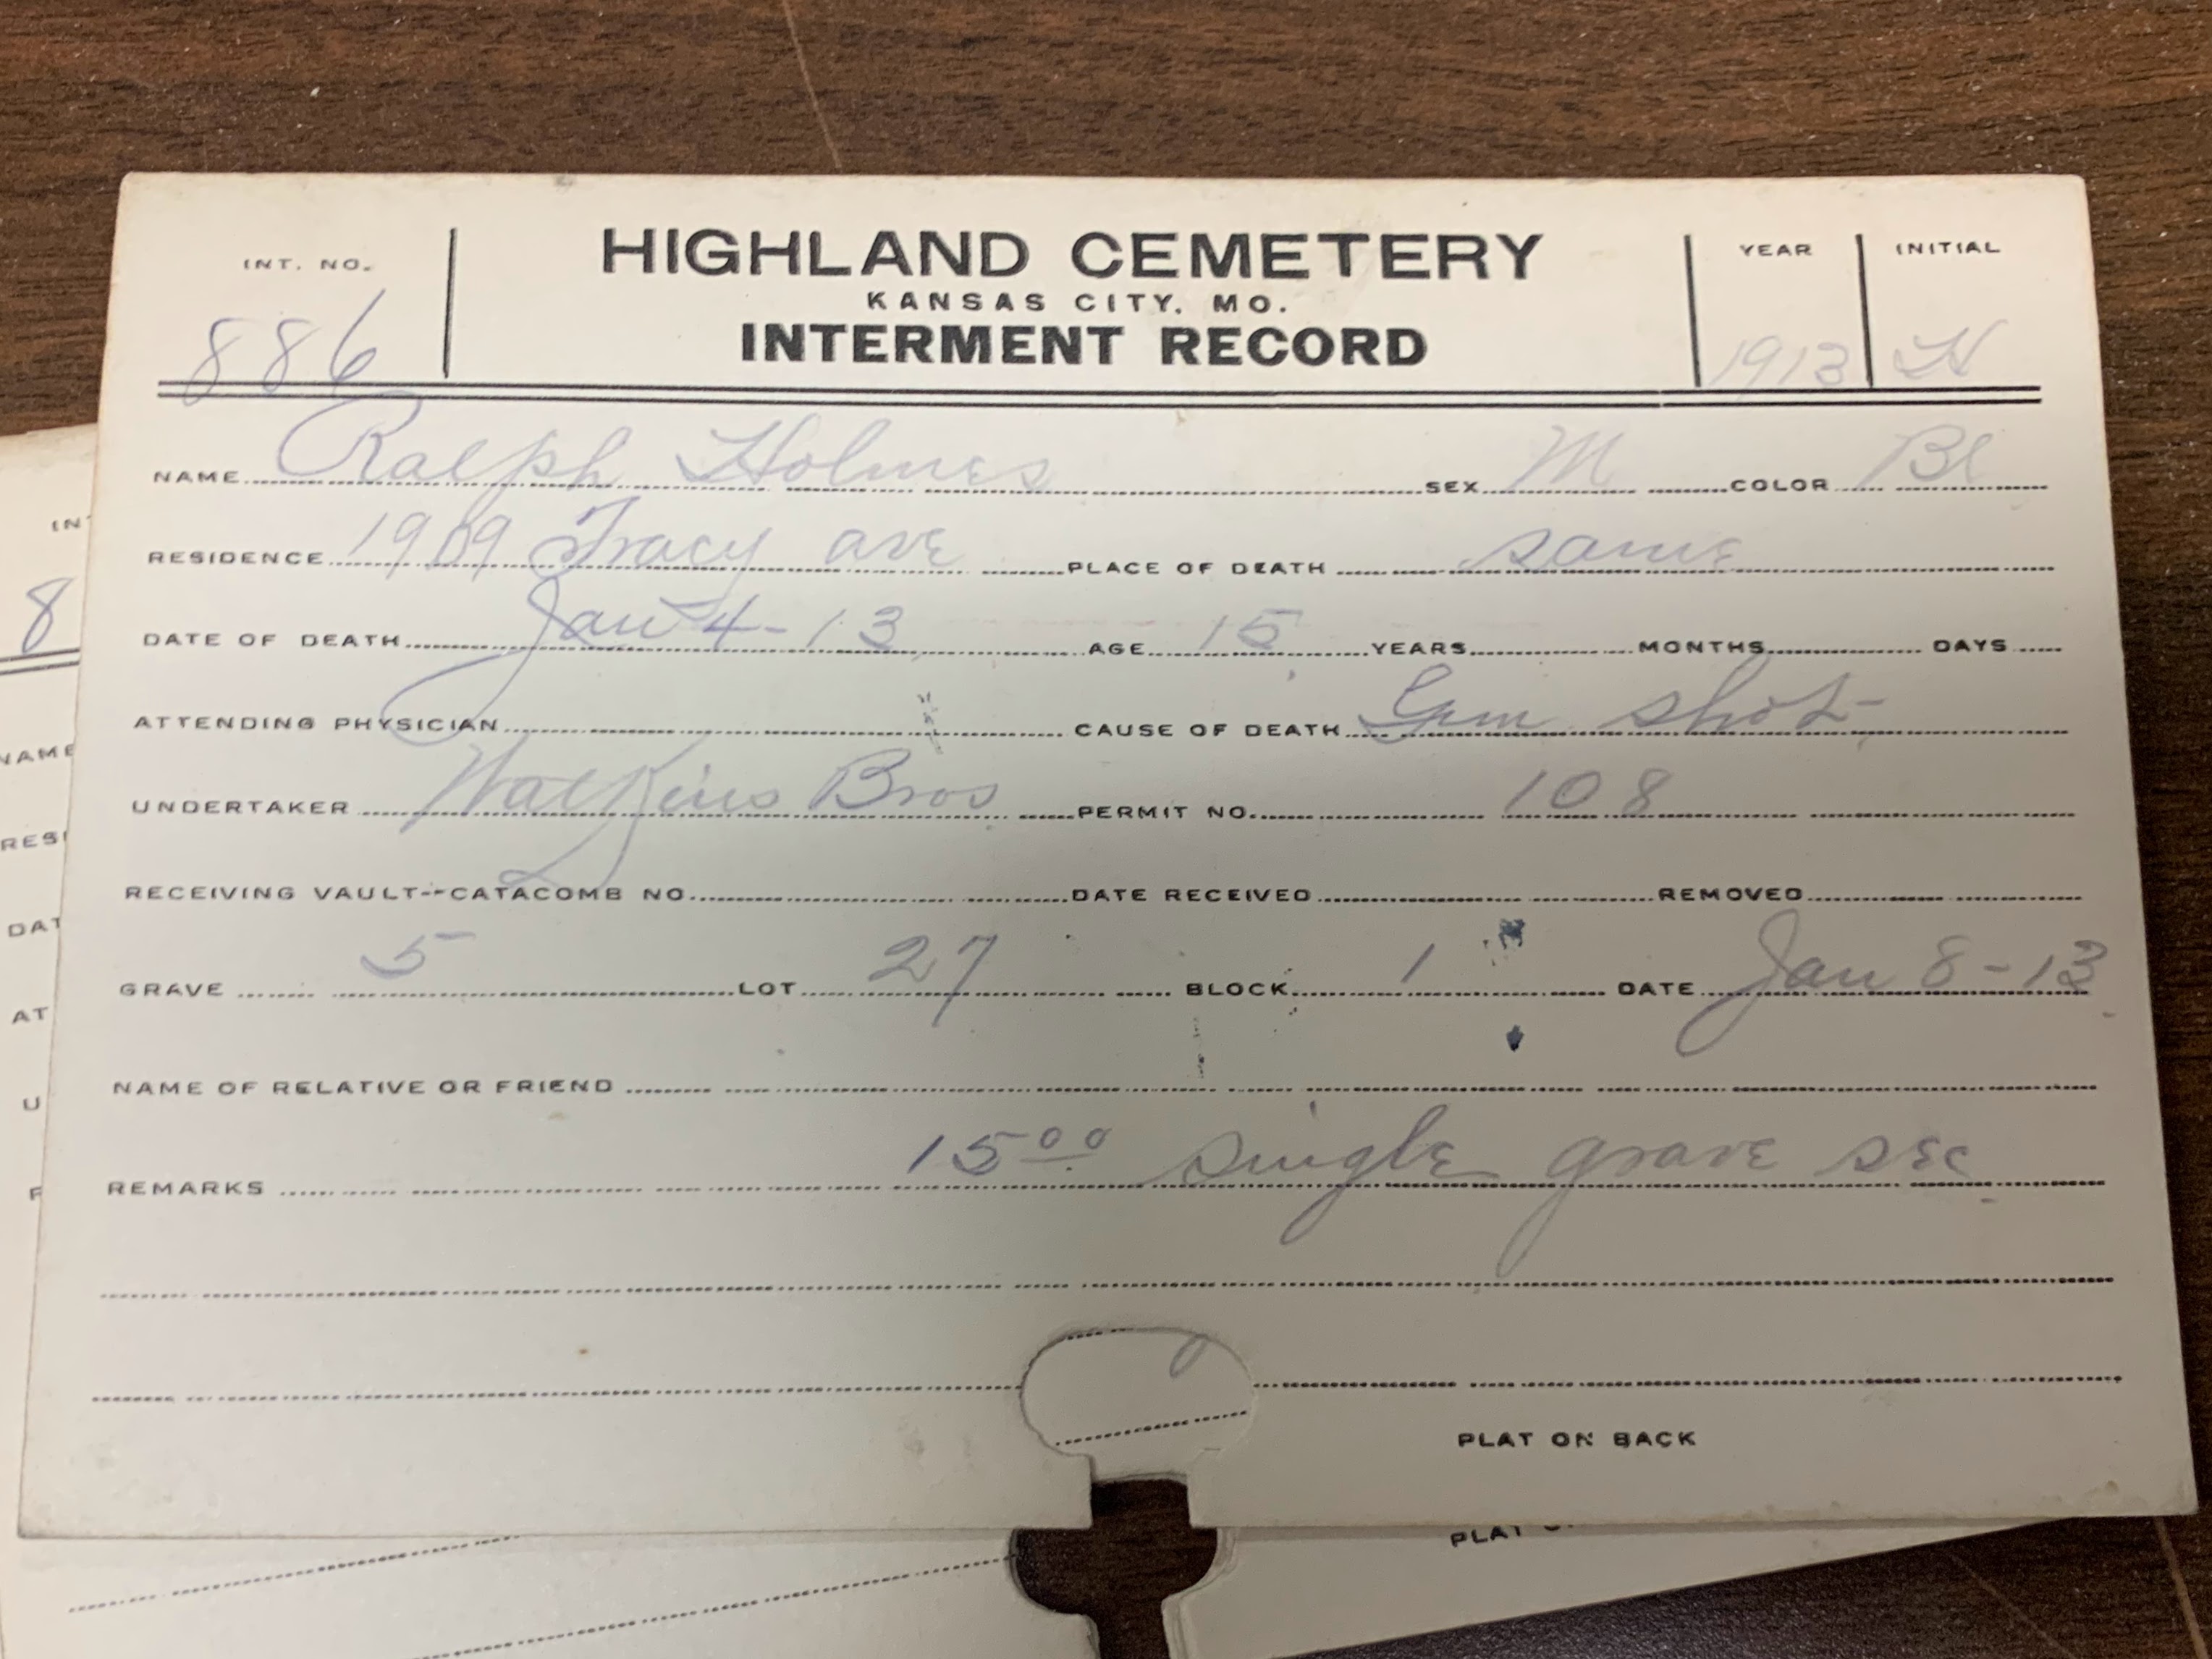 INT. NO. HIGHLAND CEMETERY YEAR INITIAL
KANSAS CITY, MO.
886 INTERMENT RECORD 1913 H
NAME Ralph Holmes SEX M COLOR Bl
RESIDENCE 1909 Tracy ave PLACE OF DEATH same
DATE OF DEATH Jan 4-13 AGE 15 YEARS MONTHS DAYS
ATTENDING PHYSICIAN CAUSE OF DEATH Gun shot
UNDERTAKER Watkins Bros PERMIT NO. 108
RECEIVING VAULT--CATACOMB NO. DATE RECEIVED REMOVED
GRAVE 5 LOT 27 BLOCK 1 DATE Jan 8-13
NAME OF RELATIVE OR FRIEND
REMARKS 15⁰⁰ single grave sec
PLAT ON BACK
IN
8
NAME
RESI
DAT
AT
U
PLAT